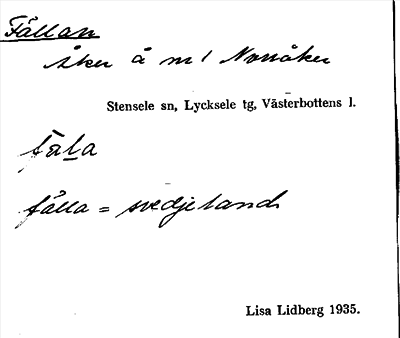 Fällan
Åker å m/ Norråker
Stensele sn, Lycksele tg, Västerbottens l.
fäla
fälla = svedjeland
Lisa Lidberg 1935.